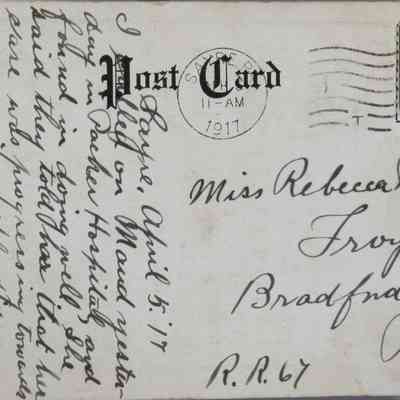 Post Card
SAYRE PA
11-AM
1917
Sayre, April 5, '17
I called on Maud yester-
day in Packer Hospital and
found in doing well. She
said they told her that her
case was progressing towards
Miss Rebecca
Troy
Bradford
R.R. 67